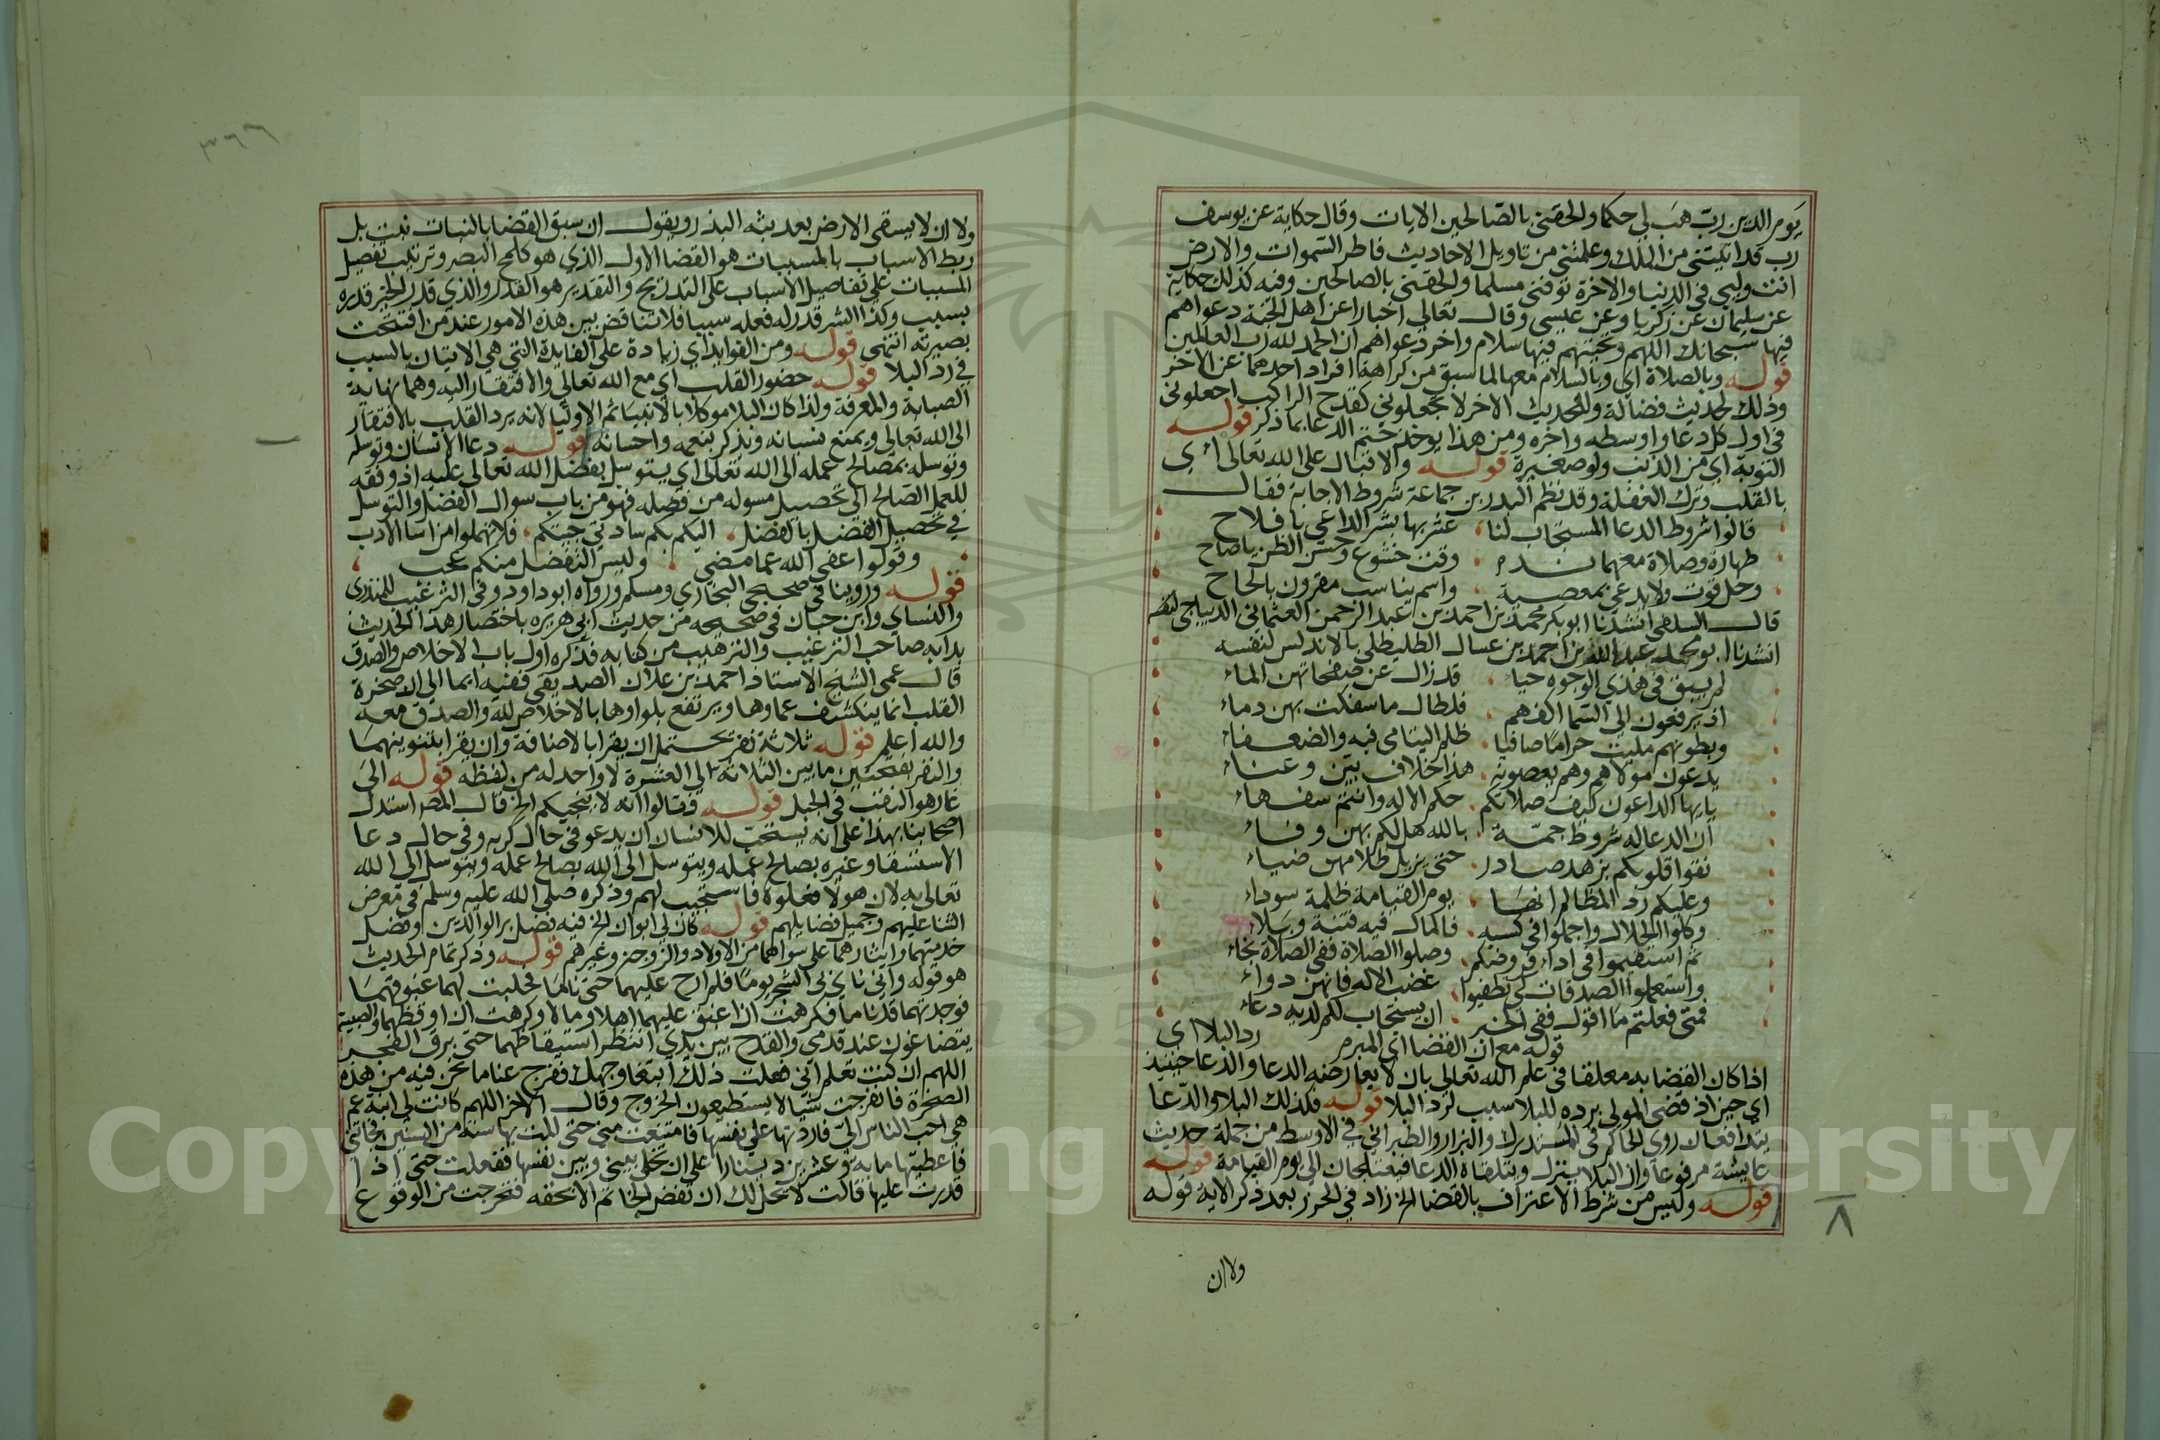 يوم الدين رب هب لي حكما والحقني بالصالحين الايات وقال حكاية عن يوسف
رب قد اتيتني من الملك وعلمتني من تاويل الاحاديث فاطر السموات والارض
انت وليي في الدنيا والاخرة توفني مسلما والحقني بالصالحين وفيه كذلك حكاية
عن سليمان عن زكريا وعن عيسى وقال تعالى اخبارا عن اهل الجنة دعواهم
فيها سبحانك اللهم وتحيتهم فيها سلام واخر دعواهم ان الحمد لله رب العالمين
قوله وبالصلاة اي وبالسلام معها لما سبق من كراهة افراد احدهما عن الاخر
وذلك لحديث فضالة وللحديث الاخر لا تجعلوني كقدح الراكب اجعلوني
في اول كل دعا واوسطه واخره ومن هذا يوخذ ختم الدعا بما ذكر قوله
التوبة اي من الذنب ولو صغيرة قوله والاقبال على الله تعالى اي
بالقلب وترك الغفلة وقد نظم البدر بن جماعة شروط الاجابة فقال
قالوا شروط الدعا المستجاب لنا عشر بها بشر الداعي بافلاح
طهارة وصلاة معهما ندم وقت خشوع وحسن الظن ياصاح
وحل قوت ولا يدعى بمعصية واسم يناسب مقرون بالحاح
قال السلفي انشدنا ابو بكر محمد بن احمد بن عبد الرحمن العثماني الديباجي لنفسه
انشدنا ابو محمد عبد الله بن احمد بن عسال الطليطلي بالاندلس لنفسه
لم يبق في هذي الوجوه حياء قد زال عن صفحاتهن الماء
اذ يرفعون الى السما اكفهم فلطال ما سفكت بهن دماء
وبطونهم مليت حراما صافيا ظلم اليتامى فيه والضعفاء
يدعون مولاهم وهم يعصونه هذا خلاف بين وعناء
يايها الداعون كيف صلاتكم حكم الاله وانتم سفهاء
ان الدعا له شروط جمة بالله هل لكم بهن وفاء
نقوا قلوبكم بزهد صادر حتى يزيل ظلامهن ضياء
وعليكم رد المظالم انها يوم القيامة ظلمة سوداء
وكلوا الحلال واجملوا في كسبه فالمال فيه فتنة وبلاء
ثم استقيموا في اداء فروضكم وصلوا الصلاة ففي الصلاة نجاء
واستعملوا الصدقات كي تطفيوا غضب الاله فانهن دواء
فمتى فعلتم ما اقول ففي الخبر ان يستجاب لكم لديه دعاء
قوله مع ان القضا اي المبرم رد البلا اي
اذا كان القضا به معلقا في علم الله تعالى بان لا يعارضه الدعا والدعا حينيذ
اي حين اذ قضى المولى برده للبلا سبب لرد البلا قوله فكذلك البلا والدعا
يتدافعان روى الحاكم في المستدرك والبزار والطبراني في الاوسط من جملة حديث
عايشة مرفوعا وان البلا ينزل ويتلقاه الدعا فيعتلجان الى يوم القيامة قوله
قوله وليس من شرط الاعتراف بالقضا الخ زاد في الحرز بعد ذكر الاية قوله
ولا ان
٨
٣٦٦
ولا ان لا يسقى الارض بعد بثه البذر ويقول ان سبق القضا بالنبات نبت بل
ربط الاسباب بالمسببات هو القضا الاول الذي هو كلمح البصر وترتيب تفصيل
المسببات على تفاصيل الاسباب على التدريج والتقدير هو القدر والذي قدر الخير قدره
بسبب وكذا الشر قدر له فعله سببا فلا تناقض بين هذه الامور عند من افتتحت
بصيرته انتهى قوله ومن الفوايد اي زيادة على الفايدة التي هي الاتيان بالسبب
في رد البلا قوله حضور القلب اي مع الله تعالى والافتقار اليه وهما نهاية
الصبابة والمعرفة ولذا كان البلا موكلا بالانبيا ثم الاوليا لانه يرد القلب بالافتقار
الى الله تعالى ويمنع نسيانه ويذكر بنعمه واحسانه قوله دعا الانسان وتوسله
وتوسله بمصالح عمله الى الله تعالى اي يتوسل بفضل الله تعالى عليه اذ وفقه
للعمل الصالح الى تحصيل مسوله من فضله فهو من باب سوال الفضل والتوسل
في تحصيل الفضل بالفضل اليكم بكم سادتي جيتكم فلا تهملوا من اسا الادب
وقولوا عفى الله عما مضى وليس التفضل منكم عجب
قوله وروينا في صحيحي البخاري ومسلم ورواه ابو داود وفي الترغيب للمنذري
والنساي وابن حبان في صحيحه من حديث ابي هريرة باختصار هذا الحديث
بدا به صاحب الترغيب والترهيب من كتابه فذكره اول باب الاخلاص والصدق
قال عمي الشيخ الاستاذ احمد بن علان الصديقي ففيه ايما الى ان صخرة
القلب انما ينكشف عماوها ويرتفع بلواوها بالاخلاص لله والصدق معه
والله اعلم قوله ثلاثة نفر يحتمل ان يقرا بالاضافة وان يقرا بتنوينهما
والنفر بفتحتين ما بين الثلاثة الى العشرة لا واحد له من لفظه قوله الى
غار هو النقب في الجبل قوله فقالوا انه لا ينجيكم الخ قال المص استدل
اصحابنا بهذا على انه يستحب للانسان ان يدعو في حال كربه وفي حال دعا
الاستسقا وغيره بصالح عمله ويتوسل الى الله بصالح عمله ويتوسل الى الله
تعالى به لان هولا فعلوه فاستجيب لهم وذكره صلى الله عليه وسلم في معرض
الثنا عليهم وجميل فضايلهم قوله كان لي ابوان الخ فيه فضل بر الوالدين وفضل
خدمتهما وايثارهما على سواهما من الاولاد والزوجة وغيرهم قوله وذكر تمام الحديث
هو قوله واني ناى بي الشجر يوما فلم ارح عليهما حتى ناما فحلبت لهما غبوقهما
فوجدتهما قد ناما فكرهت ان اغبق عليهما اهلا ومالا وكرهت ان اوقظهما والصبية
يتضاغون عند قدمي والقدح بين يدي انتظر استيقاظهما حتى برق الفجر
اللهم ان كنت تعلم اني فعلت ذلك ابتغا وجهك ففرج عنا ما نحن فيه من هذه
الصخرة فانفرجت شيا لا يستطيعون الخروج وقال الاخر اللهم كانت لي ابنة عم
هي احب الناس الي فاردتها على نفسها فامتنعت مني حتى المت بها سنة من السنين فجاتني
فاعطيتها ماية وعشرين دينارا على ان تخلي بيني وبين نفسها ففعلت حتى اذا
قدرت عليها قالت لا تحل لك ان تفض الخاتم الا بحقه فتحرجت من الوقوع